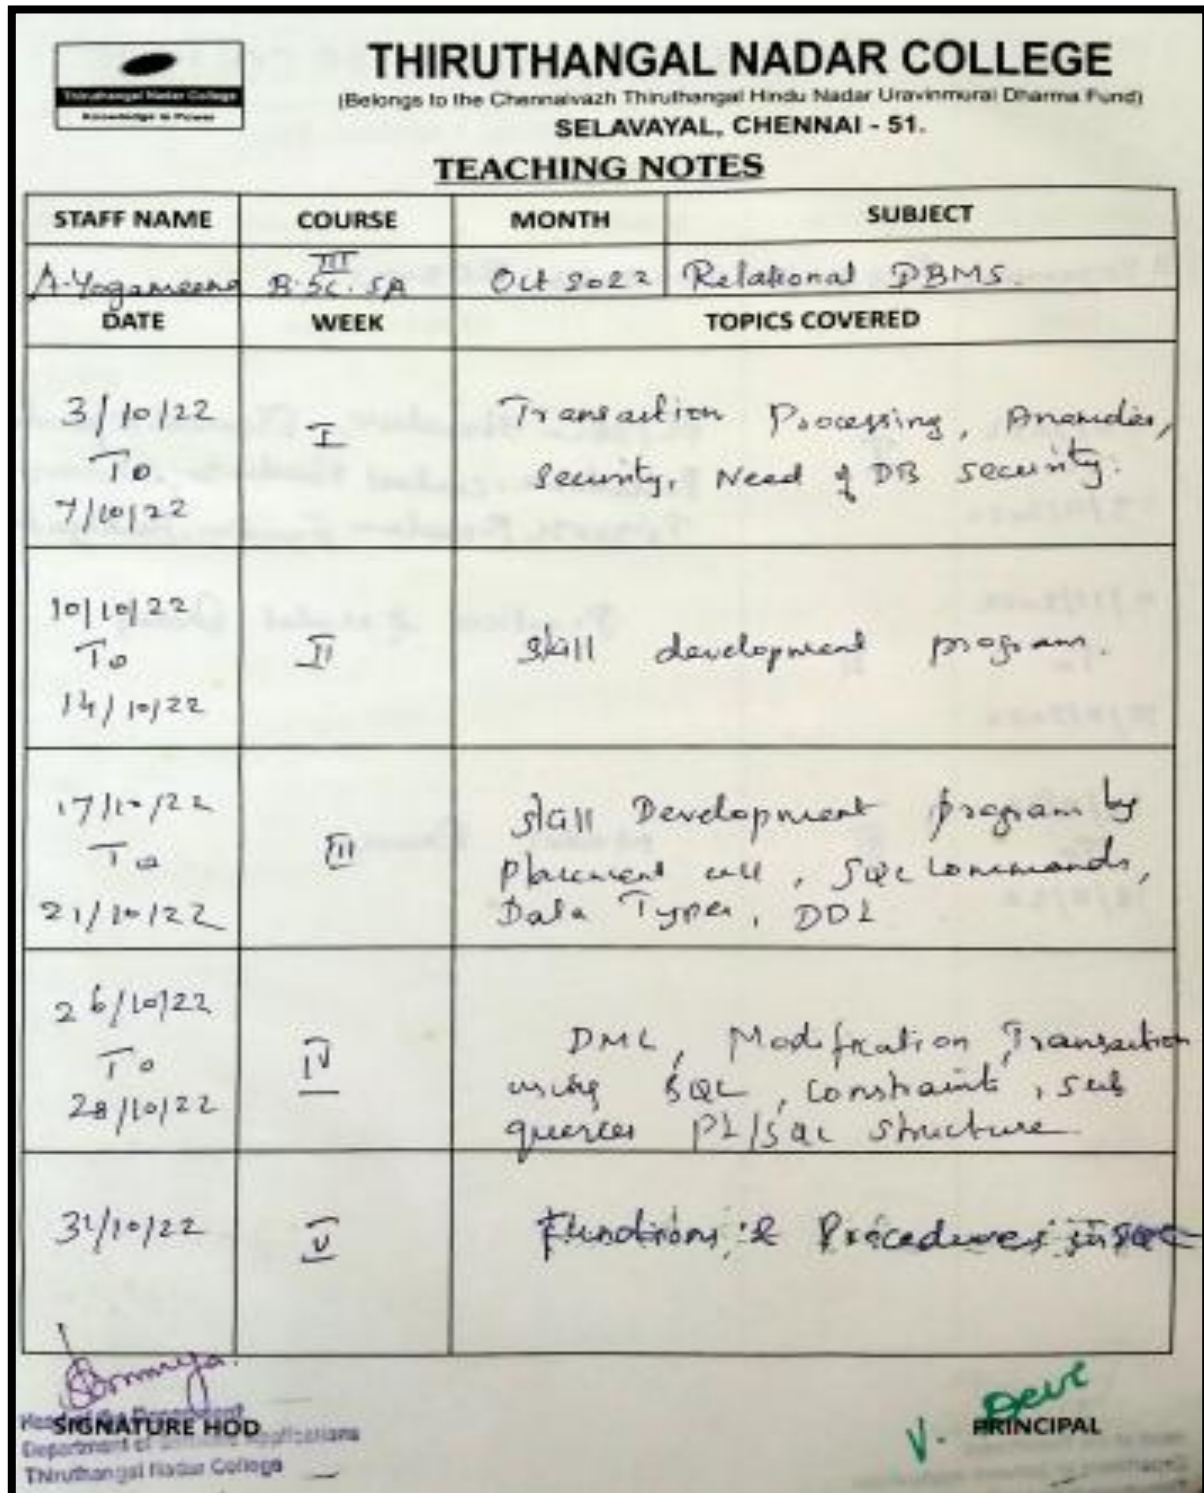 Thiruthangal Nadar College
Knowledge is Power
THIRUTHANGAL NADAR COLLEGE
(Belongs to the Chennaivazh Thiruthangal Hindu Nadar Uravinmurai Dharma Fund)
SELAVAYAL, CHENNAI - 51.
TEACHING NOTES
STAFF NAME COURSE MONTH SUBJECT
A.Yogameena III B.Sc. SA Oct 2022 Relational DBMS.
DATE WEEK TOPICS COVERED
3/10/22
To
7/10/22
I
Transaction Processing,
Security, Need of DB security.
10/10/22
To
14/10/22
II
Skill development program.
17/10/22
To
21/10/22
III
Skill Development program by
placement cell, SQL commands,
Data Types, DDL
26/10/22
To
28/10/22
IV
DML, Modification, Transaction
using SQL, constraint, sub
queries PL/SQL structure.
31/10/22
V
Functions & Procedures in SQL
SIGNATURE HOD
Head of the Department
Department of Software Applications
Thiruthangal Nadar College
V. Devi
PRINCIPAL